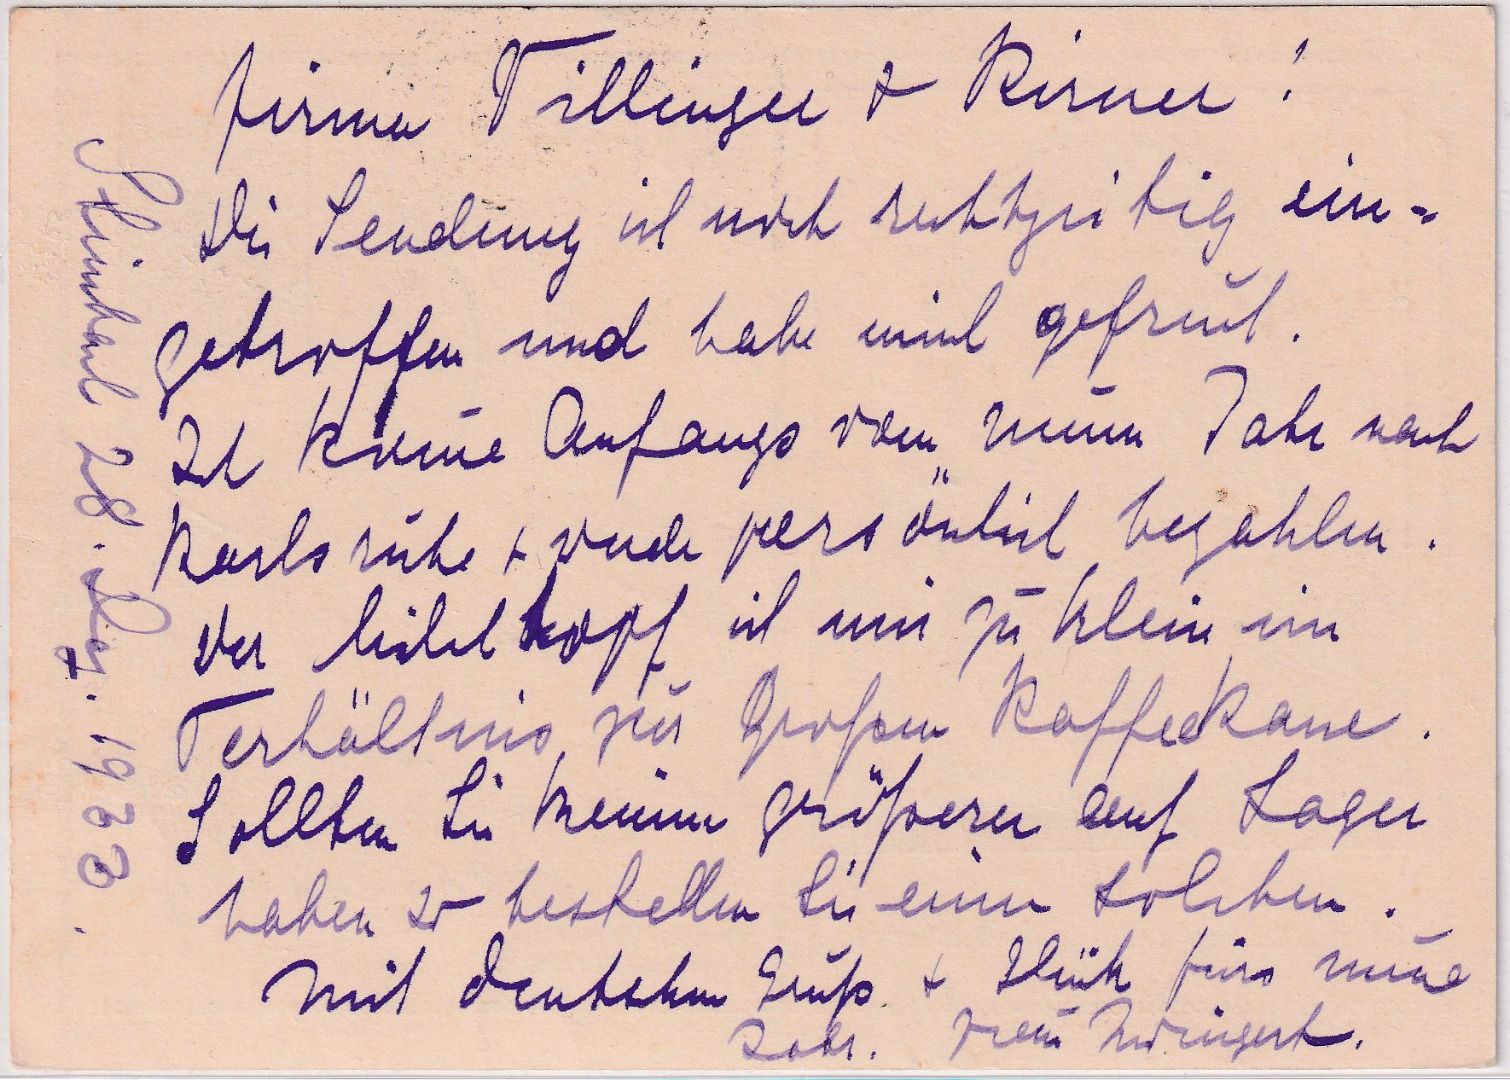 Firma Villinger & Kirner!
Die Sendung ist noch rechtzeitig ein=
getroffen und habe mich gefreut.
Ich komme Anfangs vom neuen Jahr nach
Karlsruhe + werde persönlich bezahlen.
Der Milchtopf ist mir zu klein im
Verhältnis zur Großen Kaffeekane.
Sollten Sie keinen größeren auf Lager
haben so bestellen Sie einen solchen.
Mit deutschem Gruß + Glück fürs neue
Jahr. Frau Zwingert.
28. Dez. 1933.